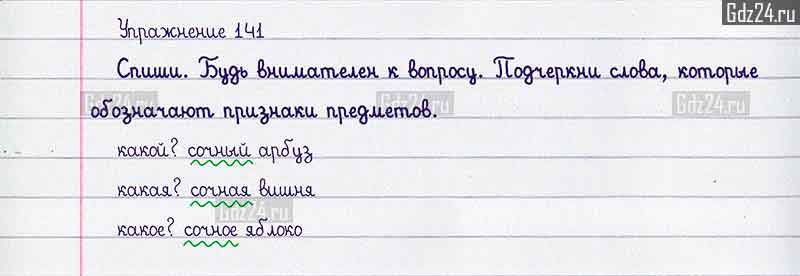 Gdz24.ru
Упражнение 141
Спиши. Будь внимателен к вопросу. Подчеркни слова, которые
Gdz24.ru Gdz24.ru
обозначают признаки предметов.
какой? сочный арбуз
какая? сочная вишня
Gdz24.ru
какое? сочное яблоко